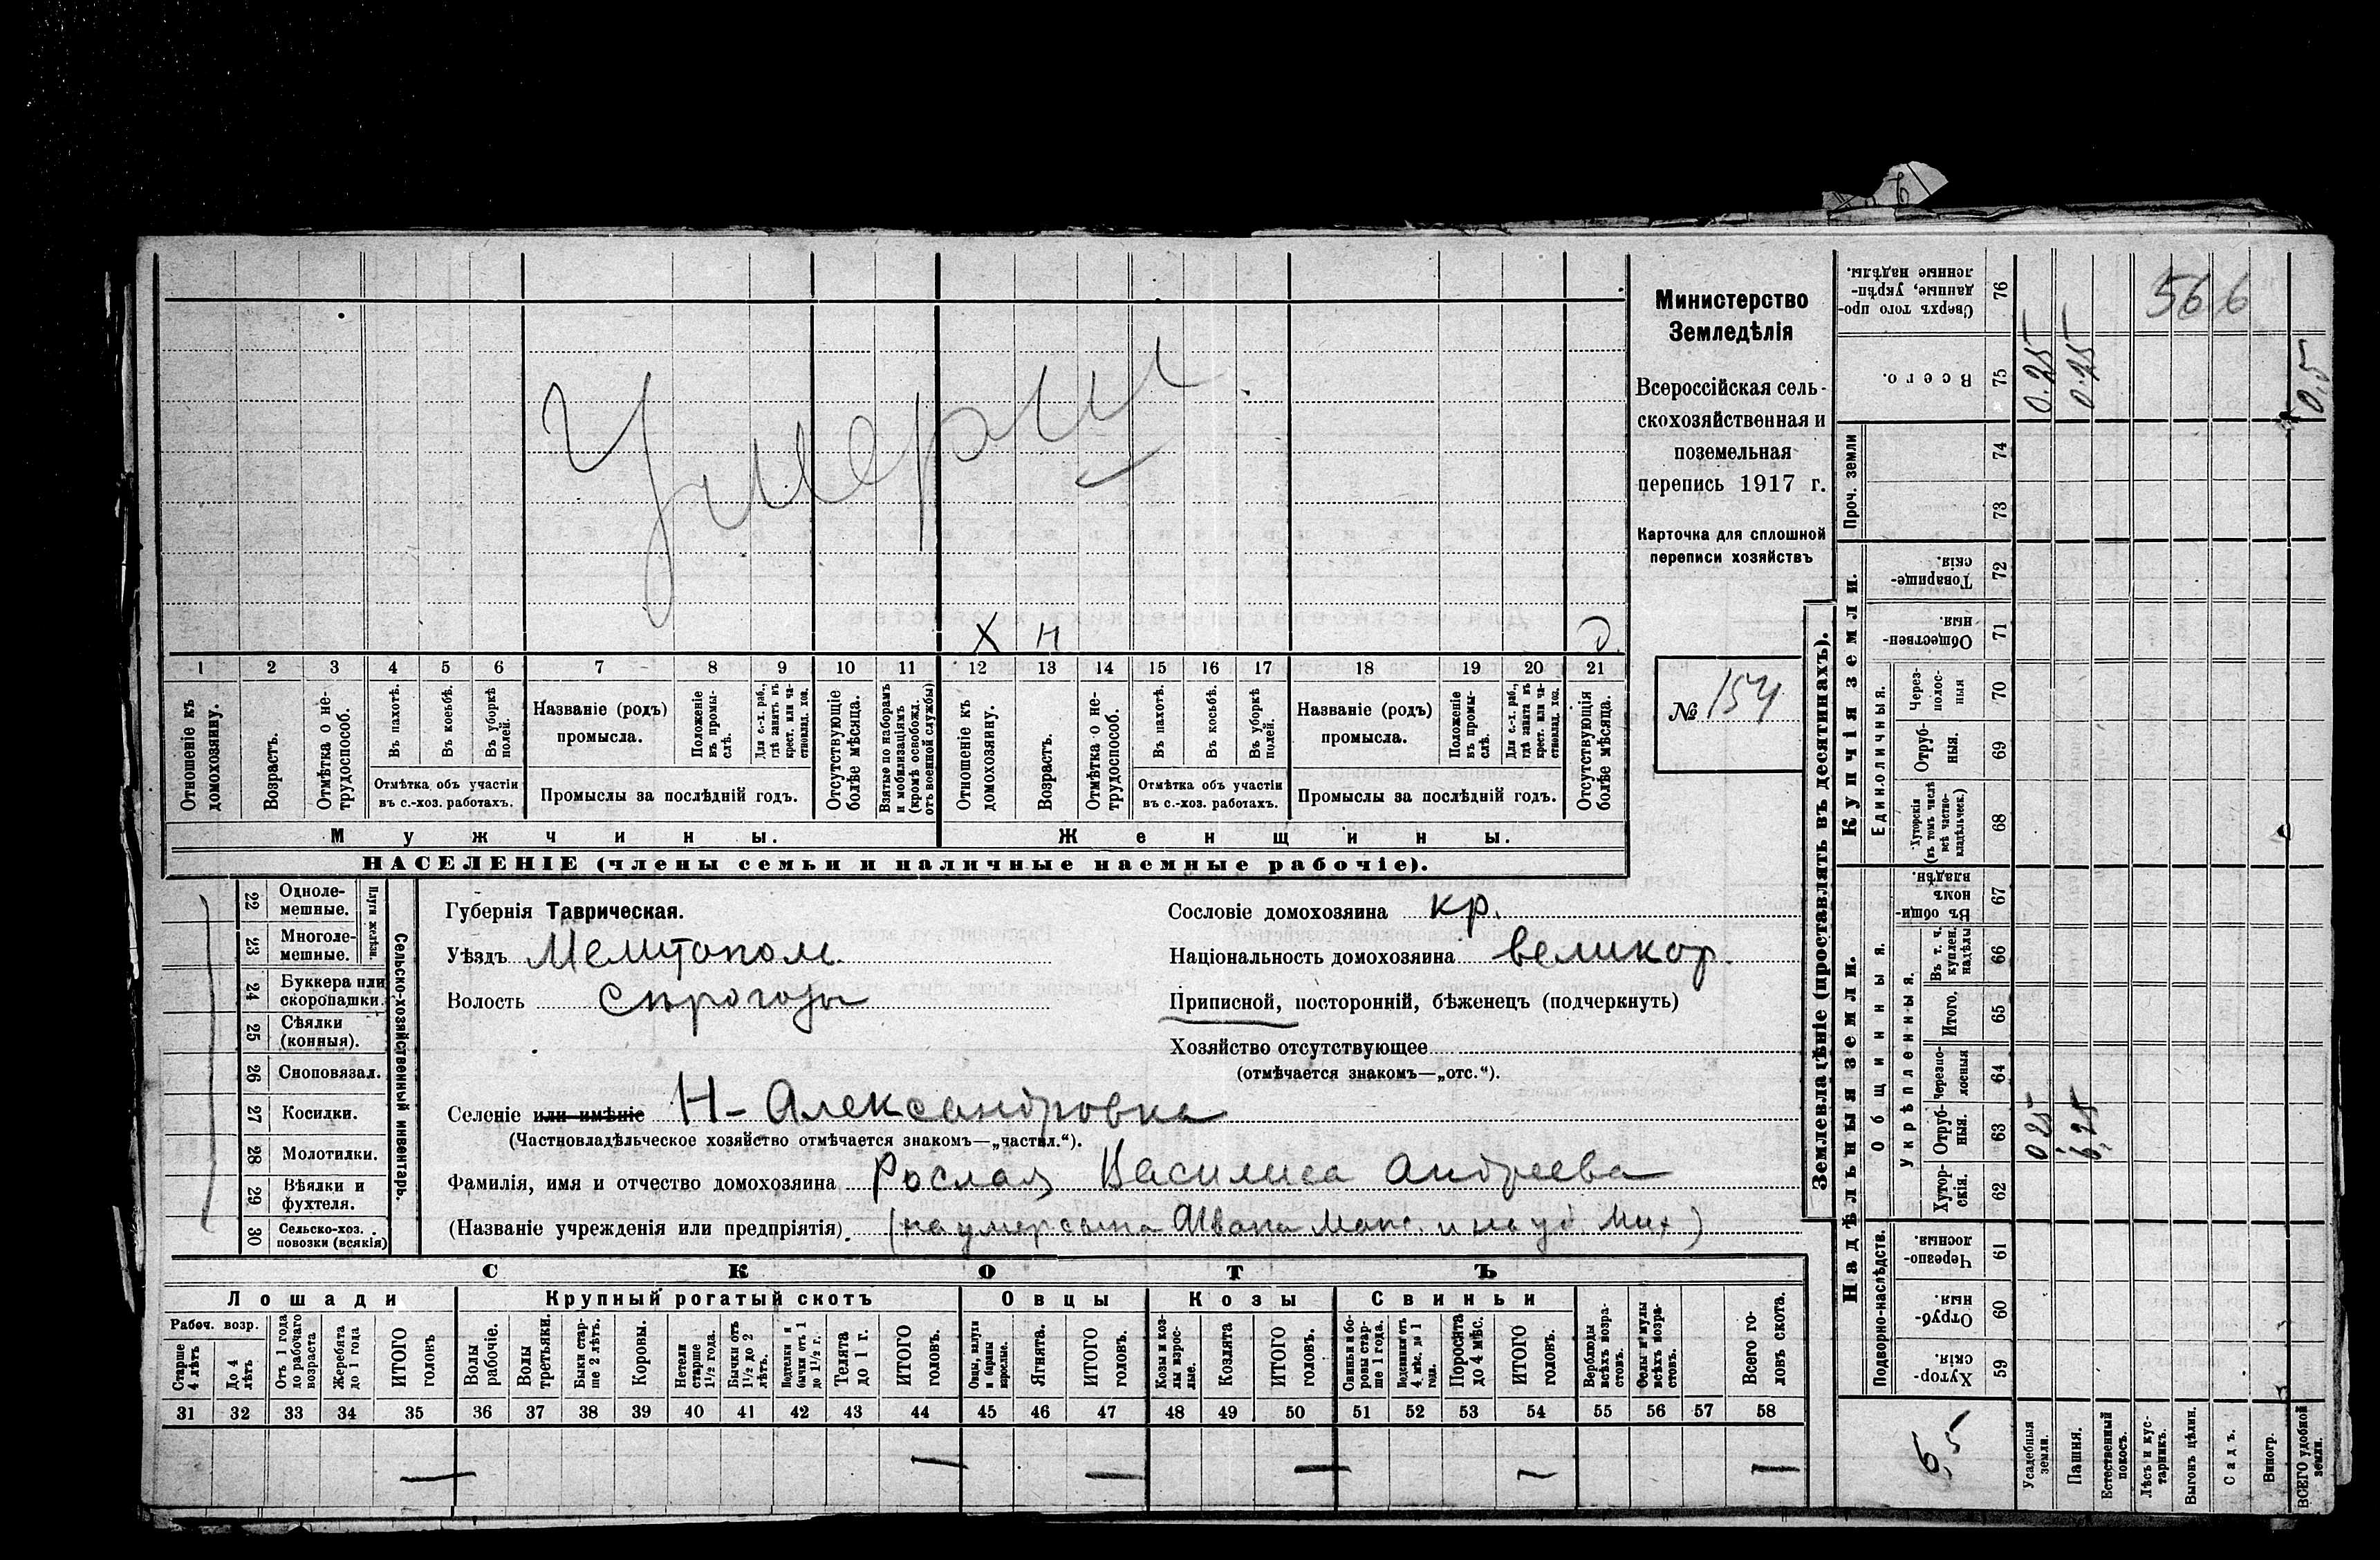 566
Министерство
Земледѣлія
Всероссійская сель-
скохозяйственная и
поземельная
перепись 1917 г.
Карточка для сплошной
переписи хозяйствъ
№ 154
Умерш
X Н
1 2 3 4 5 6 7 8 9 10 11 12 13 14 15 16 17 18 19 20 21
Отношеніе къ домохозяину.
Возрастъ.
Отмѣтка о не-трудоспособ.
Въ пахотѣ.
Въ косьбѣ.
Въ уборкѣ полей.
Отмѣтка объ участіи
въ с.-хоз. работахъ.
Названіе (родъ)
промысла.
Положеніе въ промы-слѣ.
Для с.-х. раб., гдѣ занятъ въ крест. или ча-стновлад. хоз.
Промыслы за послѣдній годъ.
Отсутствующіе болѣе мѣсяца.
Взятые по наборамъ и мобилизаціямъ (кромѣ освобожд. отъ военной службы)
Отношеніе къ домохозяину.
Возрастъ.
Отмѣтка о не-трудоспособ.
Въ пахотѣ.
Въ косьбѣ.
Въ уборкѣ полей.
Отмѣтка объ участіи
въ с.-хоз. работахъ.
Названіе (родъ)
промысла.
Положеніе въ промы-слѣ.
Для с.-х. раб., гдѣ занята въ крест. или ча-стновлад. хоз.
Промыслы за послѣдній годъ.
Отсутствующія болѣе мѣсяца.
Мужчины.
Женщины.
НАСЕЛЕНІЕ (члены семьи и наличные наемные рабочіе).
22 Одноле-мешные.
23 Многоле-мешные.
Плуги желѣзн.
24 Буккера или скоропашки.
25 Сѣялки (конныя).
26 Сноповязал.
27 Косилки.
28 Молотилки.
29 Вѣялки и фухтеля.
30 Сельско-хоз. повозки (всякія)
Сельско-хозяйственный инвентарь.
Губернія Таврическая.
Уѣздъ Мелитопол.
Волость Сѣрогозы
Сословіе домохозяина кр.
Національность домохозяина великор.
Приписной, посторонній, бѣженецъ (подчеркнуть)
Хозяйство отсутствующее
(отмѣчается знакомъ—„отс.“).
Селеніе или имѣніе Н-Александровка
(Частновладѣльческое хозяйство отмѣчается знакомъ—„частвл.“).
Фамилія, имя и отчество домохозяина Рослая Василиса Андреева
(Названіе учрежденія или предпріятія). (на умер сына Ивана Макс. и на уб. Мих)
СКОТЪ
Лошади
Крупный рогатый скотъ
Овцы
Козы
Свиньи
Рабоч. возр.
Старше 4 лѣтъ
До 4 лѣтъ
Отъ 1 года до рабочаго возраста
Жеребята до 1 года
ИТОГО головъ
Волы рабочіе.
Волы третьяки.
Быки стар-ше 2 лѣтъ.
Коровы.
Нетели старше 1½ года.
Бычки отъ 1½ до 2 лѣтъ.
Подтелки и бычки отъ 1 до 1½ г.
Телята до 1 г.
ИТОГО головъ.
Овцы, валухи и бараны взрослые.
Ягнята.
ИТОГО головъ.
Козы и коз-лы взрос-лые.
Козлята
ИТОГО головъ.
Свиньи и бо-ровы стар-ше 1 года.
Подсвинки отъ 4 мѣс. до 1 года.
Поросята до 4 мѣс.
ИТОГО головъ.
Верблюды всѣхъ возра-стовъ.
Ослы и мулы всѣхъ возра-стовъ.
Всего го-ловъ скота.
31 32 33 34 35 36 37 38 39 40 41 42 43 44 45 46 47 48 49 50 51 52 53 54 55 56 57 58
— — — — — —
Землевладѣніе (проставлять въ десятинахъ).
Надѣльныя земли.
Купчія земли.
Проч. земли
Подворно-наслѣдств.
Общинныя.
Укрѣпленныя.
Единоличныя.
Хутор-скія. 59
Отруб-ныя. 60
Черезпо-лосныя. 61
Хутор-скія. 62
Отруб-ныя. 63 0 25
Черезпо-лосныя 64
Итого. 65
Въ т. ч. куплен. надѣлы 66
Въ общин-номъ владѣн. 67
Хуторскія (въ томъ числѣ всѣ частно-владѣльческ.) 68
Отруб-ныя. 69
Через-полос-ныя 70
Обществен-ныя. 71
Товарище-скія. 72
73
74
Всего. 75 0.25 0.25 0,5
Сверхъ того про-данные, укрѣп-ленные надѣлы. 76
Усадебныя земли.
Пашня.
Естественный покосъ.
Лѣсъ и кус-тарникъ.
Выгонъ цѣлин.
Садъ.
Виногр.
ВСЕГО удобной земли.